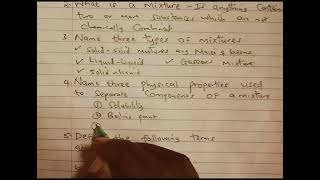 2. What is a mixture - Is anything
two or more substances which are not
chemically Combined
3. Name three types of mixtures
✓ Solid-solid mixtures eg Maize & beans
✓ Liquid-liquid ✓ Gaseous Mixture
✓ Solid-liquid
4. Name three physical properties used
to Separate Components of a mixture
① Solubility
② Boiling point
③
5. the following terms